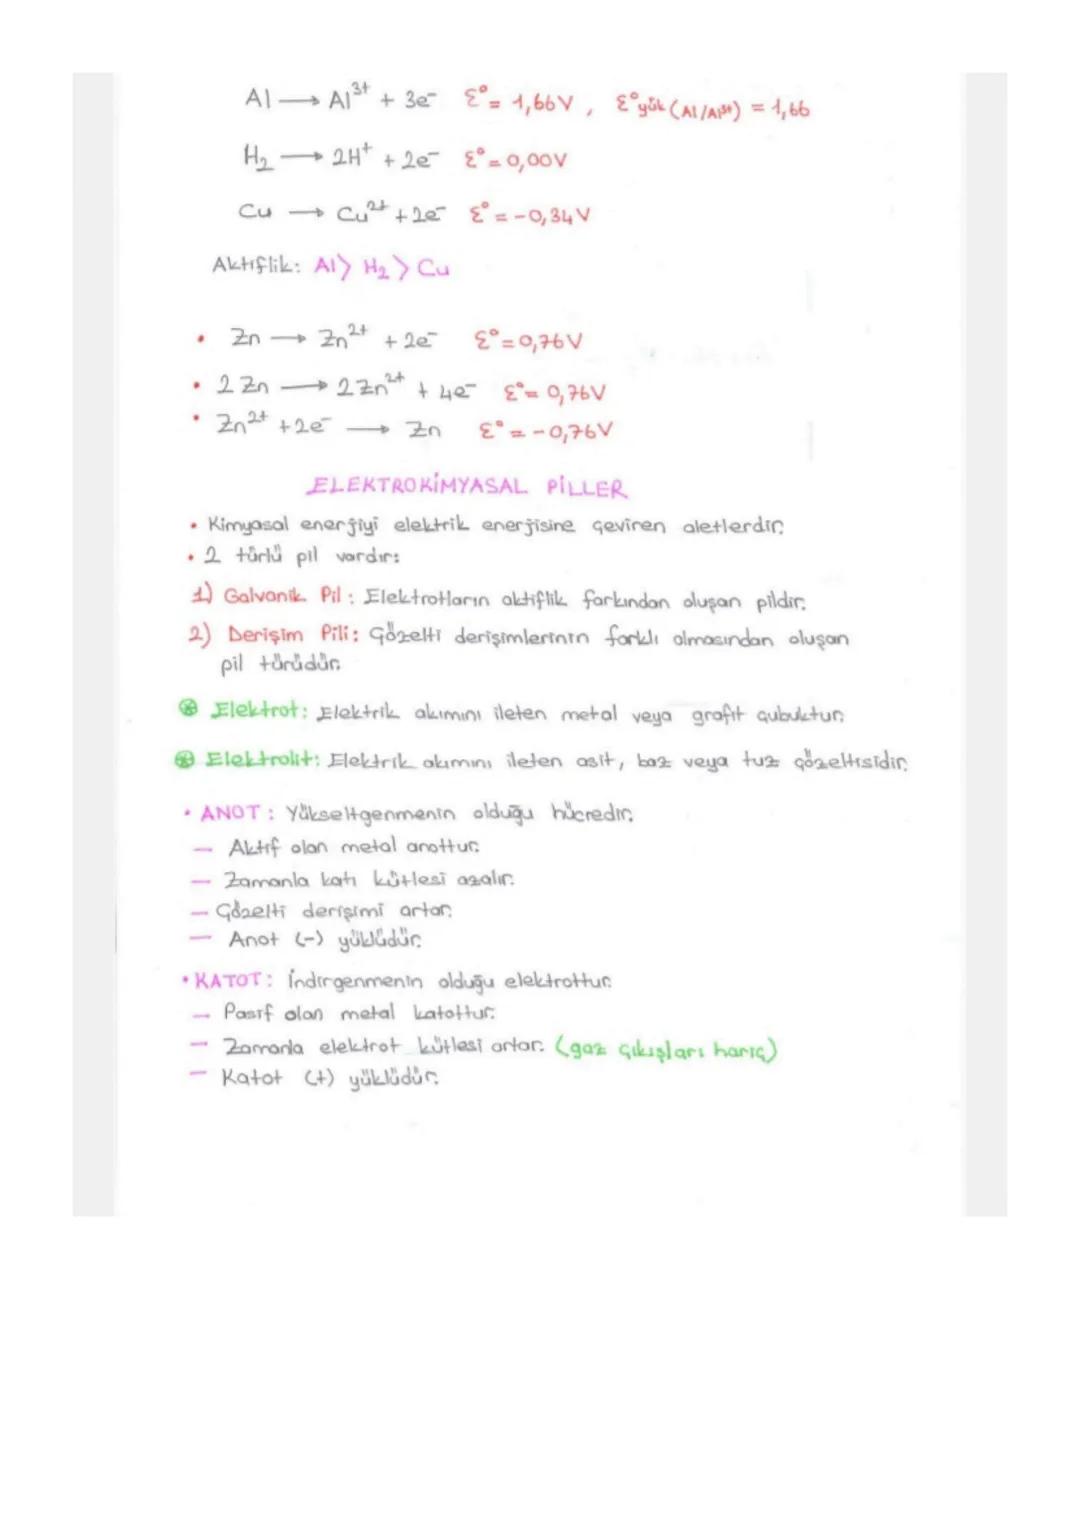 Al → Al³⁺ + 3e⁻ Ɛ° = 1,66V, Ɛ°yük (Al/Al³⁺) = 1,66
H₂ → 2H⁺ + 2e⁻ Ɛ° = 0,00V
Cu → Cu²⁺ + 2e⁻ Ɛ° = -0,34V
Aktiflik: Al > H₂ > Cu
• Zn → Zn²⁺ + 2e⁻ Ɛ° = 0,76V
• 2Zn → 2Zn²⁺ + 4e⁻ Ɛ° = 0,76V
• Zn²⁺ + 2e⁻ → Zn Ɛ° = -0,76V
ELEKTROKİMYASAL PİLLER
• Kimyasal enerjiyi elektrik enerjisine çeviren aletlerdir.
• 2 türlü pil vardır:
1) Galvanik Pil: Elektrotların aktiflik farkından oluşan pildir.
2) Derişim Pili: Çözelti derişimlerinin farklı olmasından oluşan
pil türüdür.
⊛ Elektrot: Elektrik akımını ileten metal veya grafit çubuktur.
⊛ Elektrolit: Elektrik akımını ileten asit, baz veya tuz çözeltisidir.
• ANOT: Yükseltgenmenin olduğu hücredir.
— Aktif olan metal anottur.
— Zamanla katı kütlesi azalır.
— Çözelti derişimi artar.
— Anot (-) yüklüdür.
• KATOT: İndirgenmenin olduğu elektrottur.
— Pasif olan metal katottur.
— Zamanla elektrot kütlesi artar. (gaz çıkışları hariç)
— Katot (+) yüklüdür.